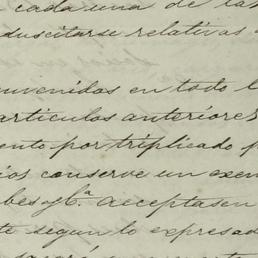 cada una de las
suscitarse relativas
nvenidas en todo l
articulos anteriores
ento por triplicado p
ios conserve un exem
bes y C.a acceptasen
te segun lo expresad